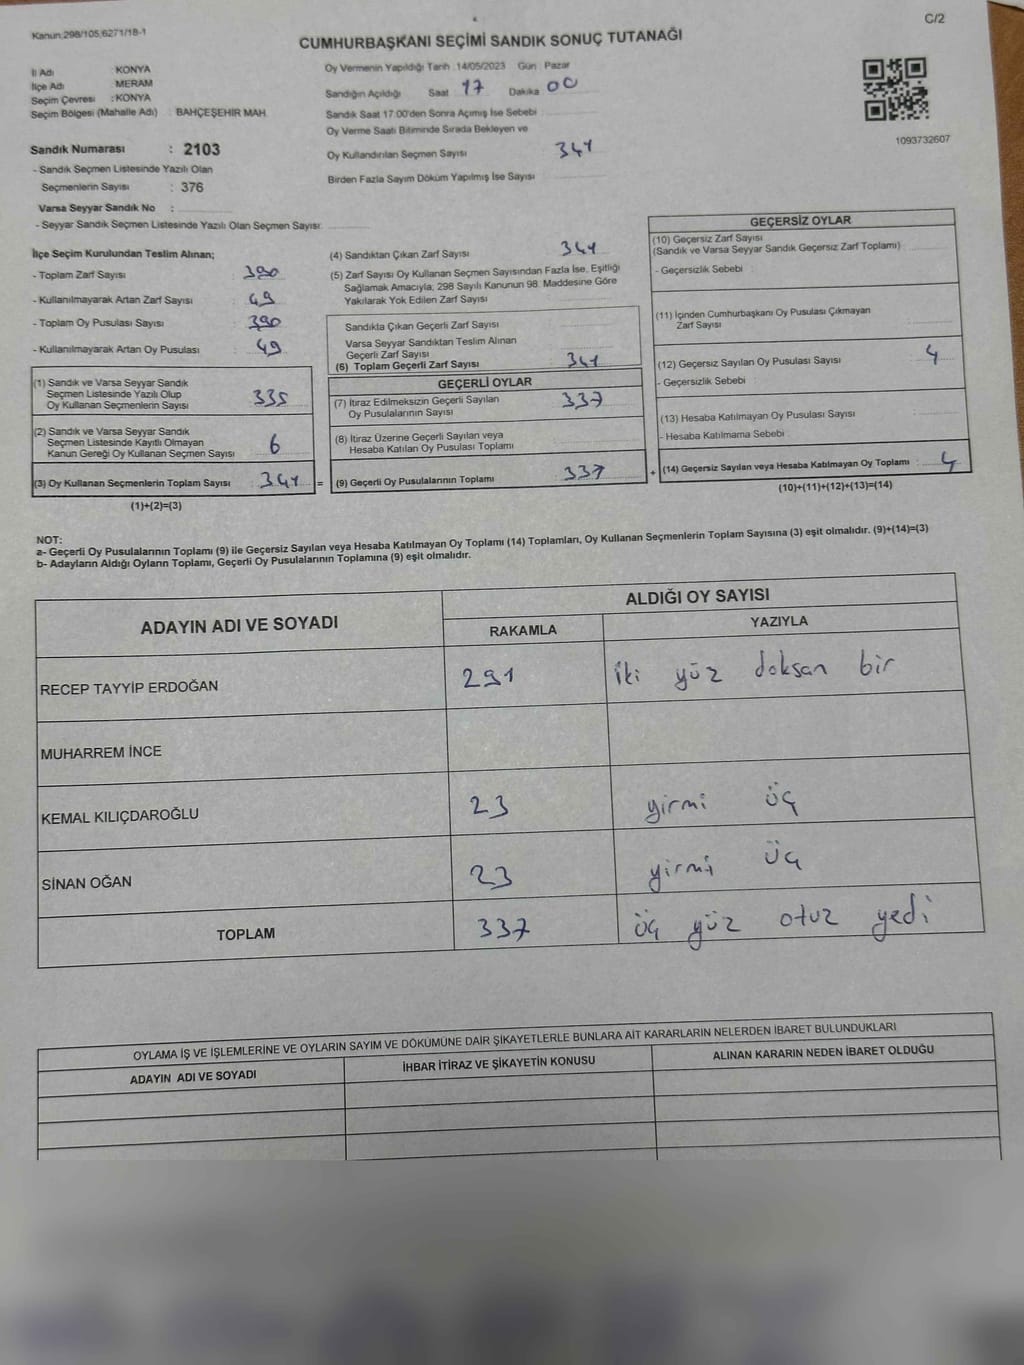 Kanun:298/105,6271/18-1
C/2
CUMHURBAŞKANI SEÇİMİ SANDIK SONUÇ TUTANAĞI
İl Adı : KONYA
İlçe Adı : MERAM
Seçim Çevresi : KONYA
Seçim Bölgesi (Mahalle Adı) : BAHÇEŞEHİR MAH.
Oy Vermenin Yapıldığı Tarih :14/05/2023 Gün : Pazar
Sandığın Açıldığı Saat 17 Dakika 00
Sandık Saat 17:00'den Sonra Açımış İse Sebebi :
Oy Verme Saati Bitiminde Sırada Bekleyen ve
Oy Kullandırılan Seçmen Sayısı 341
Birden Fazla Sayım Döküm Yapılmış İse Sayısı
1093732607
Sandık Numarası : 2103
- Sandık Seçmen Listesinde Yazılı Olan
Seçmenlerin Sayısı : 376
Varsa Seyyar Sandık No :
- Seyyar Sandık Seçmen Listesinde Yazılı Olan Seçmen Sayısı:
İlçe Seçim Kurulundan Teslim Alınan;
- Toplam Zarf Sayısı : 390
- Kullanılmayarak Artan Zarf Sayısı : 49
- Toplam Oy Pusulası Sayısı : 390
- Kullanılmayarak Artan Oy Pusulası : 49
(1) Sandık ve Varsa Seyyar Sandık
Seçmen Listesinde Yazılı Olup
Oy Kullanan Seçmenlerin Sayısı 335
(2) Sandık ve Varsa Seyyar Sandık
Seçmen Listesinde Kayıtlı Olmayan
Kanun Gereği Oy Kullanan Seçmen Sayısı 6
(3) Oy Kullanan Seçmenlerin Toplam Sayısı 341 =
(1)+(2)=(3)
(4) Sandıktan Çıkan Zarf Sayısı 341
(5) Zarf Sayısı Oy Kullanan Seçmen Sayısından Fazla İse, Eşitliği
Sağlamak Amacıyla; 298 Sayılı Kanunun 98. Maddesine Göre
Yakılarak Yok Edilen Zarf Sayısı
Sandıkta Çıkan Geçerli Zarf Sayısı
Varsa Seyyar Sandıktan Teslim Alınan
Geçerli Zarf Sayısı
(6) Toplam Geçerli Zarf Sayısı 341
GEÇERLİ OYLAR
(7) İtiraz Edilmeksizin Geçerli Sayılan
Oy Pusulalarının Sayısı 337
(8) İtiraz Üzerine Geçerli Sayılan veya
Hesaba Katılan Oy Pusulası Toplamı
(9) Geçerli Oy Pusulalarının Toplamı 337 +
GEÇERSİZ OYLAR
(10) Geçersiz Zarf Sayısı
(Sandık ve Varsa Seyyar Sandık Geçersiz Zarf Toplamı)
- Geçersizlik Sebebi :
(11) İçinden Cumhurbaşkanı Oy Pusulası Çıkmayan
Zarf Sayısı
(12) Geçersiz Sayılan Oy Pusulası Sayısı 4
- Geçersizlik Sebebi :
(13) Hesaba Katılmayan Oy Pusulası Sayısı
- Hesaba Katılmama Sebebi :
(14) Geçersiz Sayılan veya Hesaba Katılmayan Oy Toplamı : 4
(10)+(11)+(12)+(13)=(14)
NOT:
a- Geçerli Oy Pusulalarının Toplamı (9) ile Geçersiz Sayılan veya Hesaba Katılmayan Oy Toplamı (14) Toplamları, Oy Kullanan Seçmenlerin Toplam Sayısına (3) eşit olmalıdır. (9)+(14)=(3)
b- Adayların Aldığı Oyların Toplamı, Geçerli Oy Pusulalarının Toplamına (9) eşit olmalıdır.
ADAYIN ADI VE SOYADI
ALDIĞI OY SAYISI
RAKAMLA YAZIYLA
RECEP TAYYİP ERDOĞAN 291 İki yüz doksan bir
MUHARREM İNCE
KEMAL KILIÇDAROĞLU 23 yirmi üç
SİNAN OĞAN 23 yirmi üç
TOPLAM 337 üç yüz otuz yedi
OYLAMA İŞ VE İŞLEMLERİNE VE OYLARIN SAYIM VE DÖKÜMÜNE DAİR ŞİKAYETLERLE BUNLARA AİT KARARLARIN NELERDEN İBARET BULUNDUKLARI
ADAYIN ADI VE SOYADI İHBAR İTİRAZ VE ŞİKAYETİN KONUSU ALINAN KARARIN NEDEN İBARET OLDUĞU